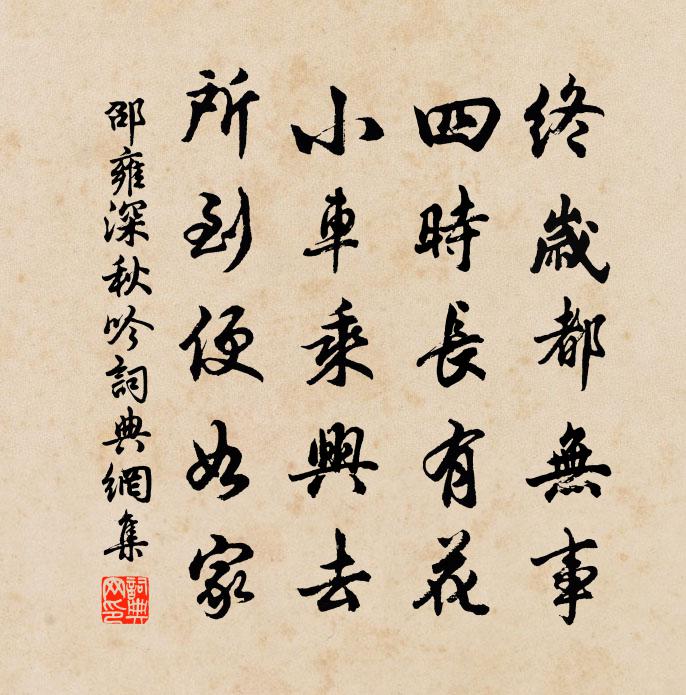 終歲都無事
四時長有花
小車乘興去
所到便如家
邵雍深秋吟詞典網集
詞典
网印